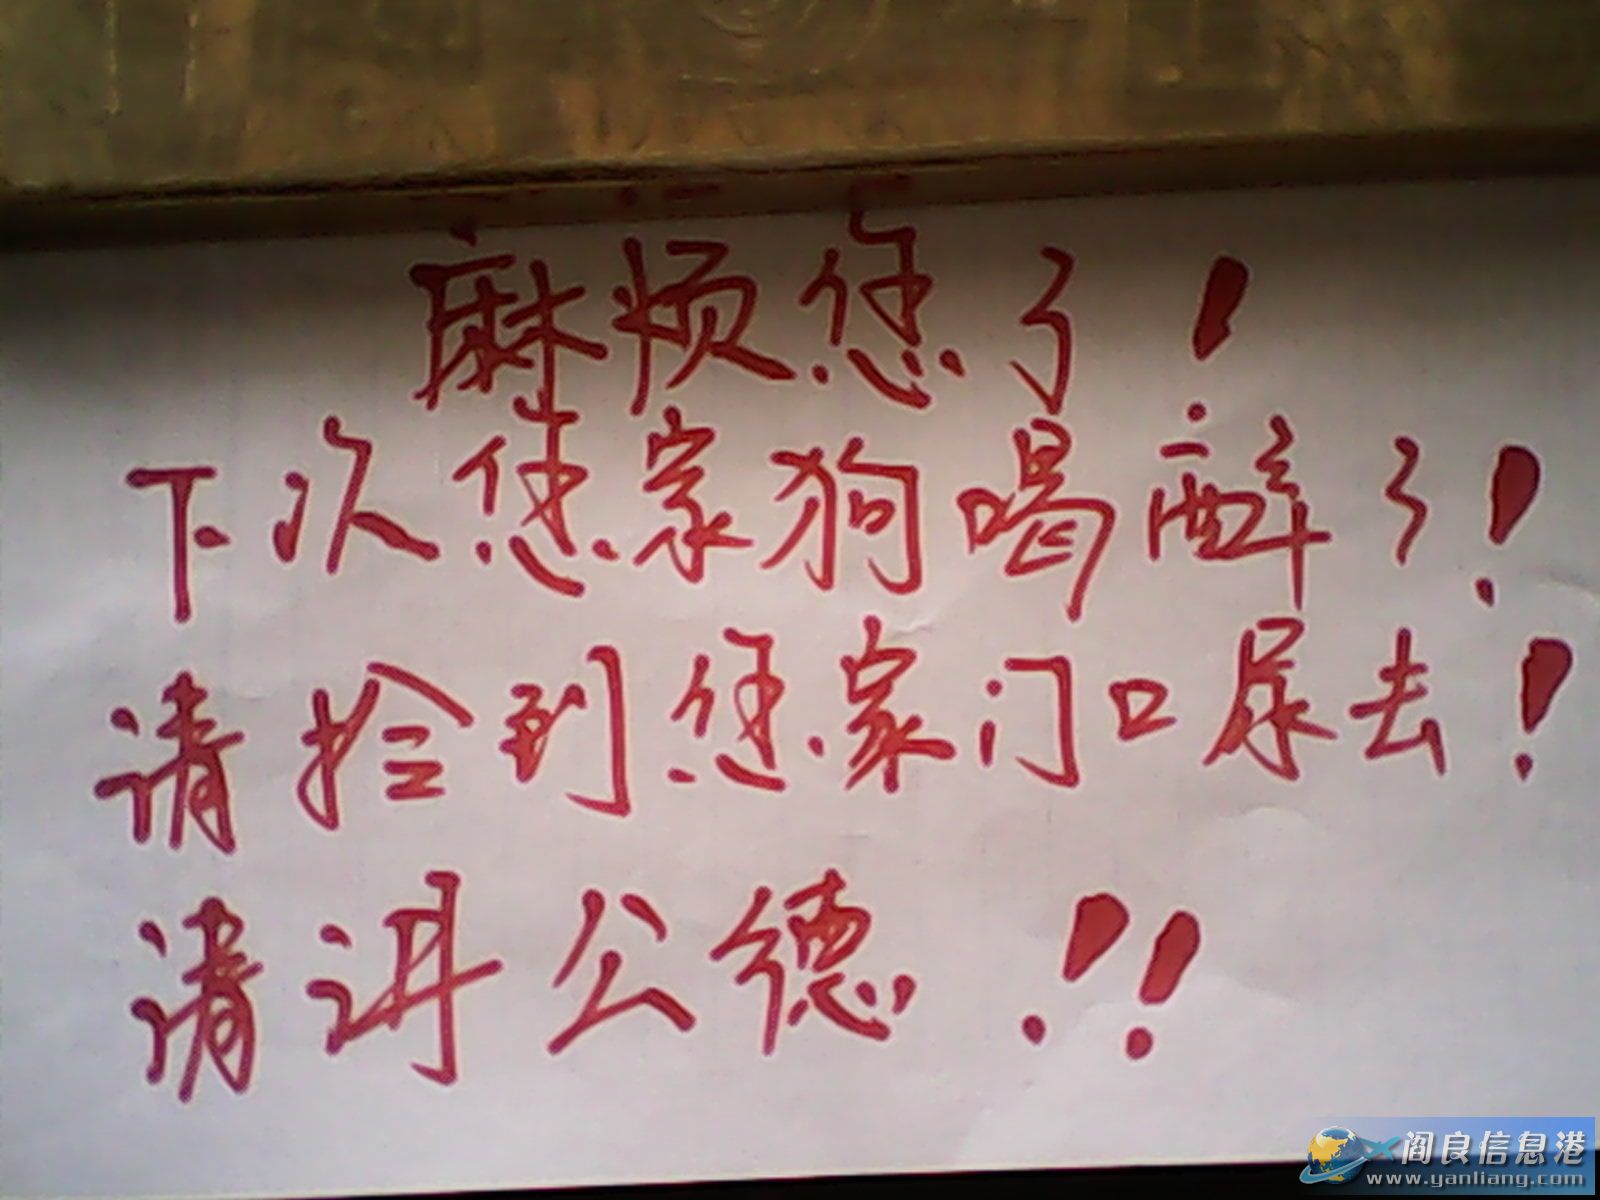 麻烦您了！
下次您家狗喝醉了！
请捡到您家门口尿去！
请讲公德！！
阎良信息港
www.yanliang.com